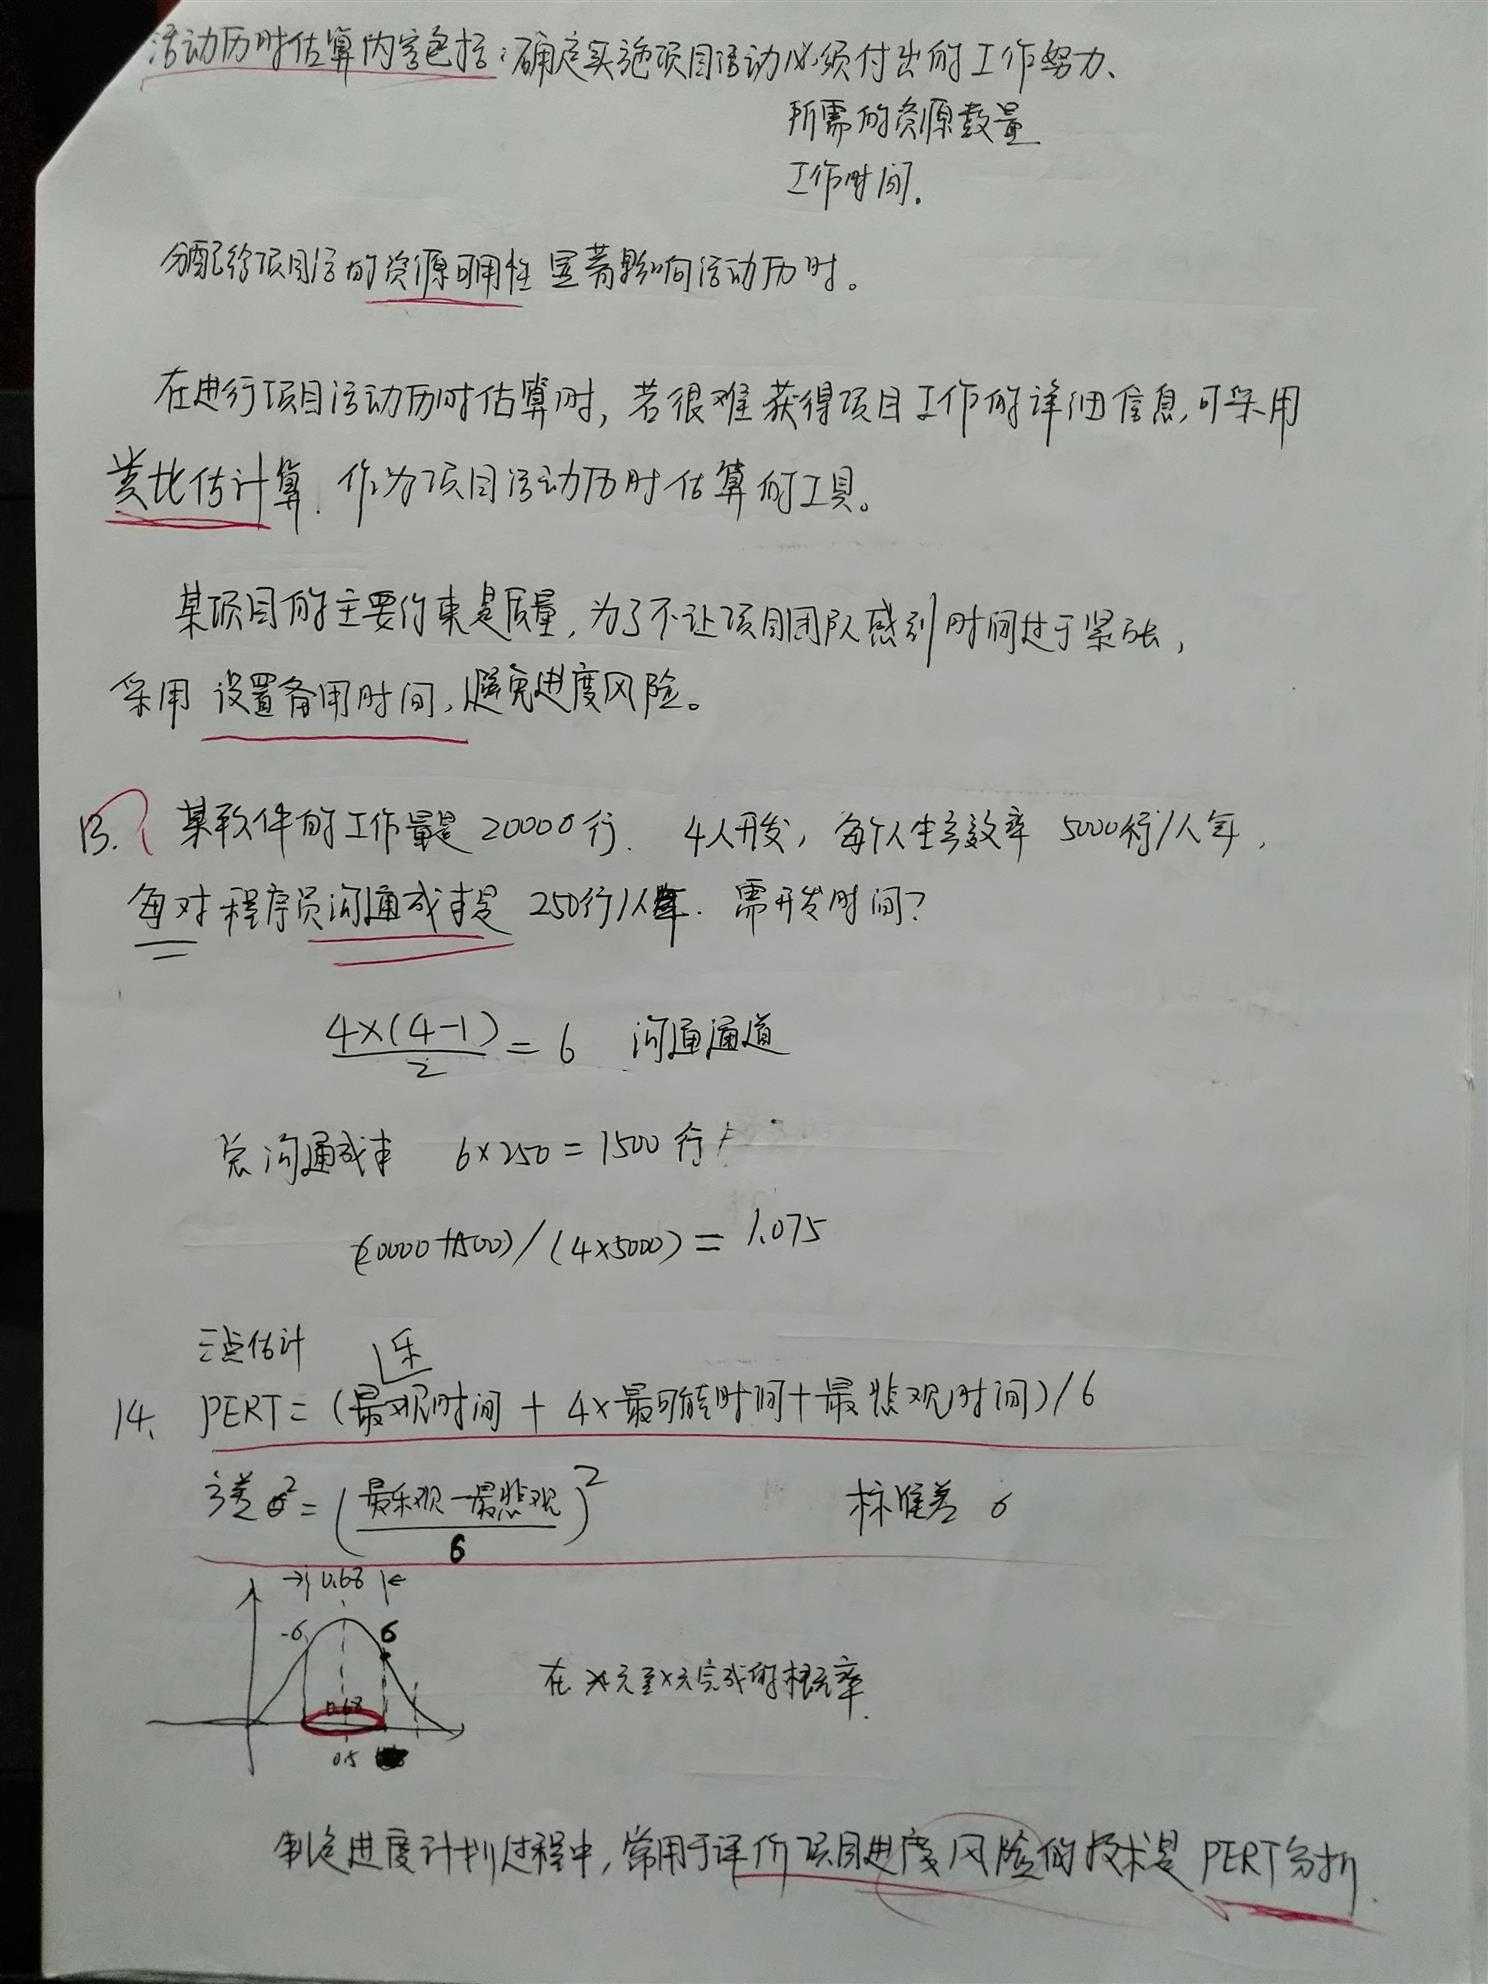 活动历时估算内容包括：确定实施项目活动必须付出的工作努力、
所需的资源数量
工作时间.
分配给项目活的资源可用性显著影响活动历时。
在进行项目活动历时估算时, 若很难获得项目工作的详细信息,可采用
类比估计算. 作为项目活动历时估算的工具。
某项目的主要约束是质量, 为了不让项目团队感到时间过于紧张,
采用 设置备用时间, 避免进度风险。
13. 某软件的工作量是 20000行. 4人开发, 每个人生产效率 5000行/人年,
每对程序员沟通成本是 250行/人年. 需开发时间?
4×(4-1)/2 = 6 沟通通道
总沟通成本 6×250 = 1500 行
(20000+1500)/(4×5000) = 1.075
三点估计 乐
14. PERT = (最观时间 + 4×最可能时间+最悲观时间)/6
方差 σ²= (最乐观-最悲观/6)² 标准差 σ
0.68
-σ σ
在×天至×天完成的概率.
0.68
0.5
制定进度计划过程中, 常用于评价项目进度风险的技术是 PERT分析.